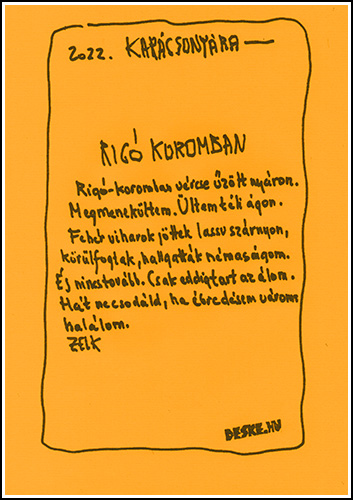 2022. KARÁCSONYÁRA —
RIGÓ KOROMBAN
Rigó-koromban vércse űzött nyáron.
Megmenekültem. Ültem téli ágon.
Fehér viharok jöttek lassu szárnyon,
körülfogtak, hallgatták némaságom.
És nincs tovább. Csak eddig tart az álom.
Hát ne csodáld, ha ébredésem várom:
halálom.
ZELK
DESKE.HU